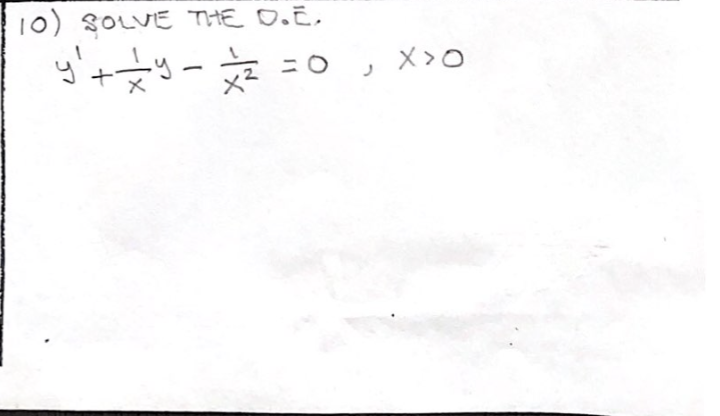 10) SOLVE THE D.E.
y' + 1/x y - 1/x² = 0 , x>0